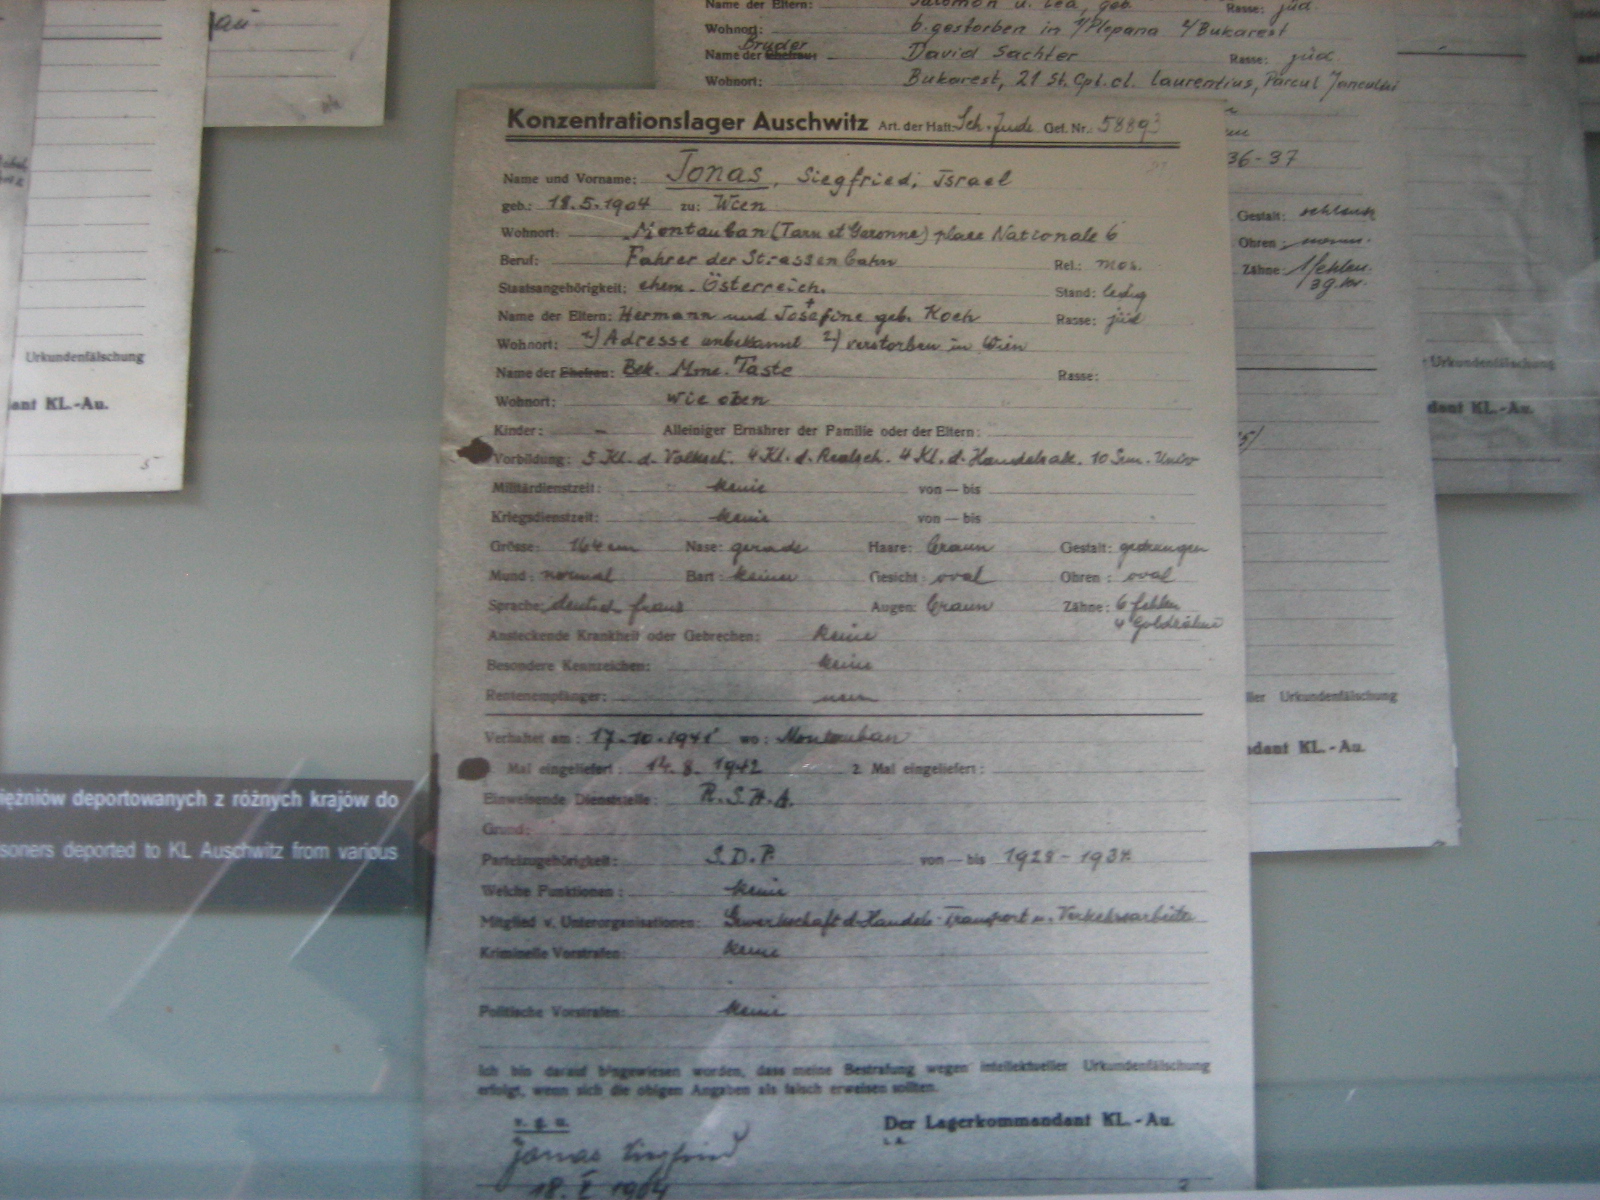 Name der Eltern: Salomon u. Lea, geb. Rasse: jüd.
Wohnort: b. gestorben in Plopana Bukarest
Bruder
Name der Ehefrau: David Sachter Rasse: jüd.
Wohnort: Bukarest, 21 St. Cpt. cl. Laurentius, Parcul Janculai
36-37
Gestalt: schlank
Ohren: norm.
Zähne: 1 fehlen.
Urkundenfälschung
dant KL.-Au.
Urkundenfälschung
dant KL.-Au.
5
Konzentrationslager Auschwitz Art. der Haft: Sch. Jude Gef. Nr.: 58893
Name und Vorname: Jonas, Siegfried, Israel
geb.: 18.5.1904 zu: Wien
Wohnort: Montauban (Tarn et Garonne) place Nationale 6
Beruf: Fahrer der Strassenbahn Rel.: mos.
Staatsangehörigkeit: ehem. Österreich. Stand: ledig
Name der Eltern: Hermann und Josefine geb. Koch Rasse: jüd
Wohnort: 1) Adresse unbekannt 2) verstorben in Wien
Name der Ehefrau: Bek. Mme. Taste Rasse:
Wohnort: wie oben
Kinder: - Alleiniger Ernährer der Familie oder der Eltern:
Vorbildung: 5 Kl. d. Volksch. 4 Kl. d. Realsch. 4 Kl. d. Handelsak. 10 Sem. Univ
Militärdienstzeit: keine von — bis
Kriegsdienstzeit: keine von — bis
Grösse: 164 cm Nase: gerade Haare: braun Gestalt: gedrungen
Mund: normal Bart: keinen Gesicht: oval Ohren: oval
Sprache: deutsch franz Augen: braun Zähne: 6 fehlen
4 Goldzähne
Ansteckende Krankheit oder Gebrechen: keine
Besondere Kennzeichen: keine
Rentenempfänger: nein
Verhaftet am: 17.10.1941 wo: Montauban
Mal eingeliefert: 14.8.1942 2. Mal eingeliefert:
Einweisende Dienststelle: R.S.H.A.
Grund:
Parteizugehörigkeit: S.D.P. von — bis 1928-1934
Welche Funktionen: keine
Mitglied v. Unterorganisationen: Gewerkschaft d. Handels-Transport u. Verkehrsarbeiter
Kriminelle Vorstrafen: keine
Politische Vorstrafen: keine
Ich bin darauf hingewiesen worden, dass meine Bestrafung wegen intellektueller Urkundenfälschung
erfolgt, wenn sich die obigen Angaben als falsch erweisen sollten.
v. g. u. Der Lagerkommandant KL.-Au.
i. A.
Jonas Siegfried
18. V 1904
2
ller Urkundenfälschung
dant KL.-Au.
ięźniów deportowanych z różnych krajów do
soners deported to KL Auschwitz from various